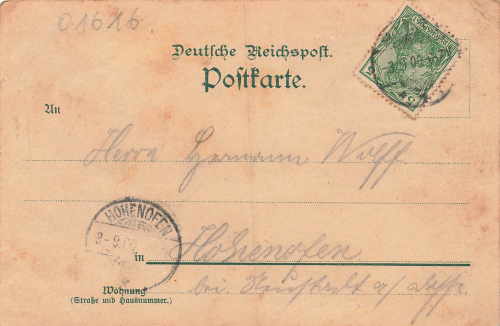 01616
Deutsche Reichspost.
Postkarte.
An
Herrn Hermann Wolff
HOHENOFEN
in Hohenofen
bei Neustadt a/ Dosse
Wohnung
(Straße und Hausnummer.)